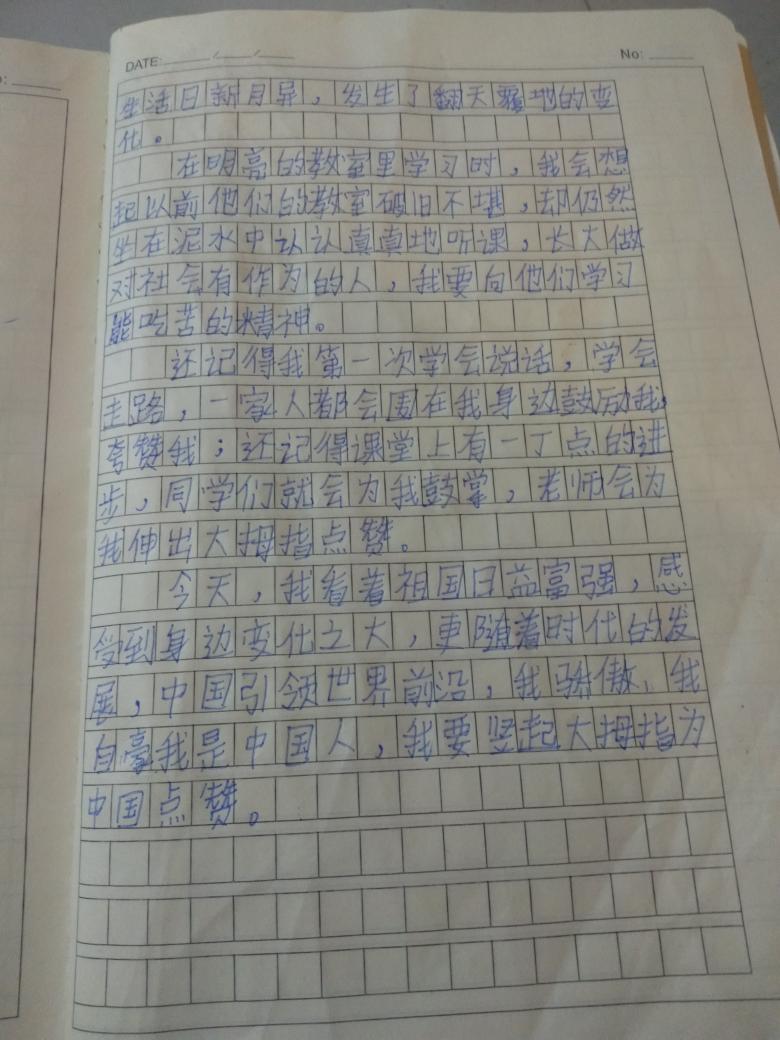 DATE: / / No:
生活日新月异，发生了翻天覆地的变
化。
在明亮的教室里学习时，我会想
起以前他们的教室破旧不堪，却仍然
坐在泥水中认认真真地听课，长大做
对社会有作为的人，我要向他们学习
能吃苦的精神。
还记得我第一次学会说话，学会
走路，一家人都会围在我身边鼓励我，
夸赞我；还记得课堂上有一丁点的进
步，同学们就会为我鼓掌，老师会为
我伸出大拇指点赞。
今天，我看着祖国日益富强，感
受到身边变化之大，更随着时代的发
展，中国引领世界前沿，我骄傲，我
自豪我是中国人，我要竖起大拇指为
中国点赞。